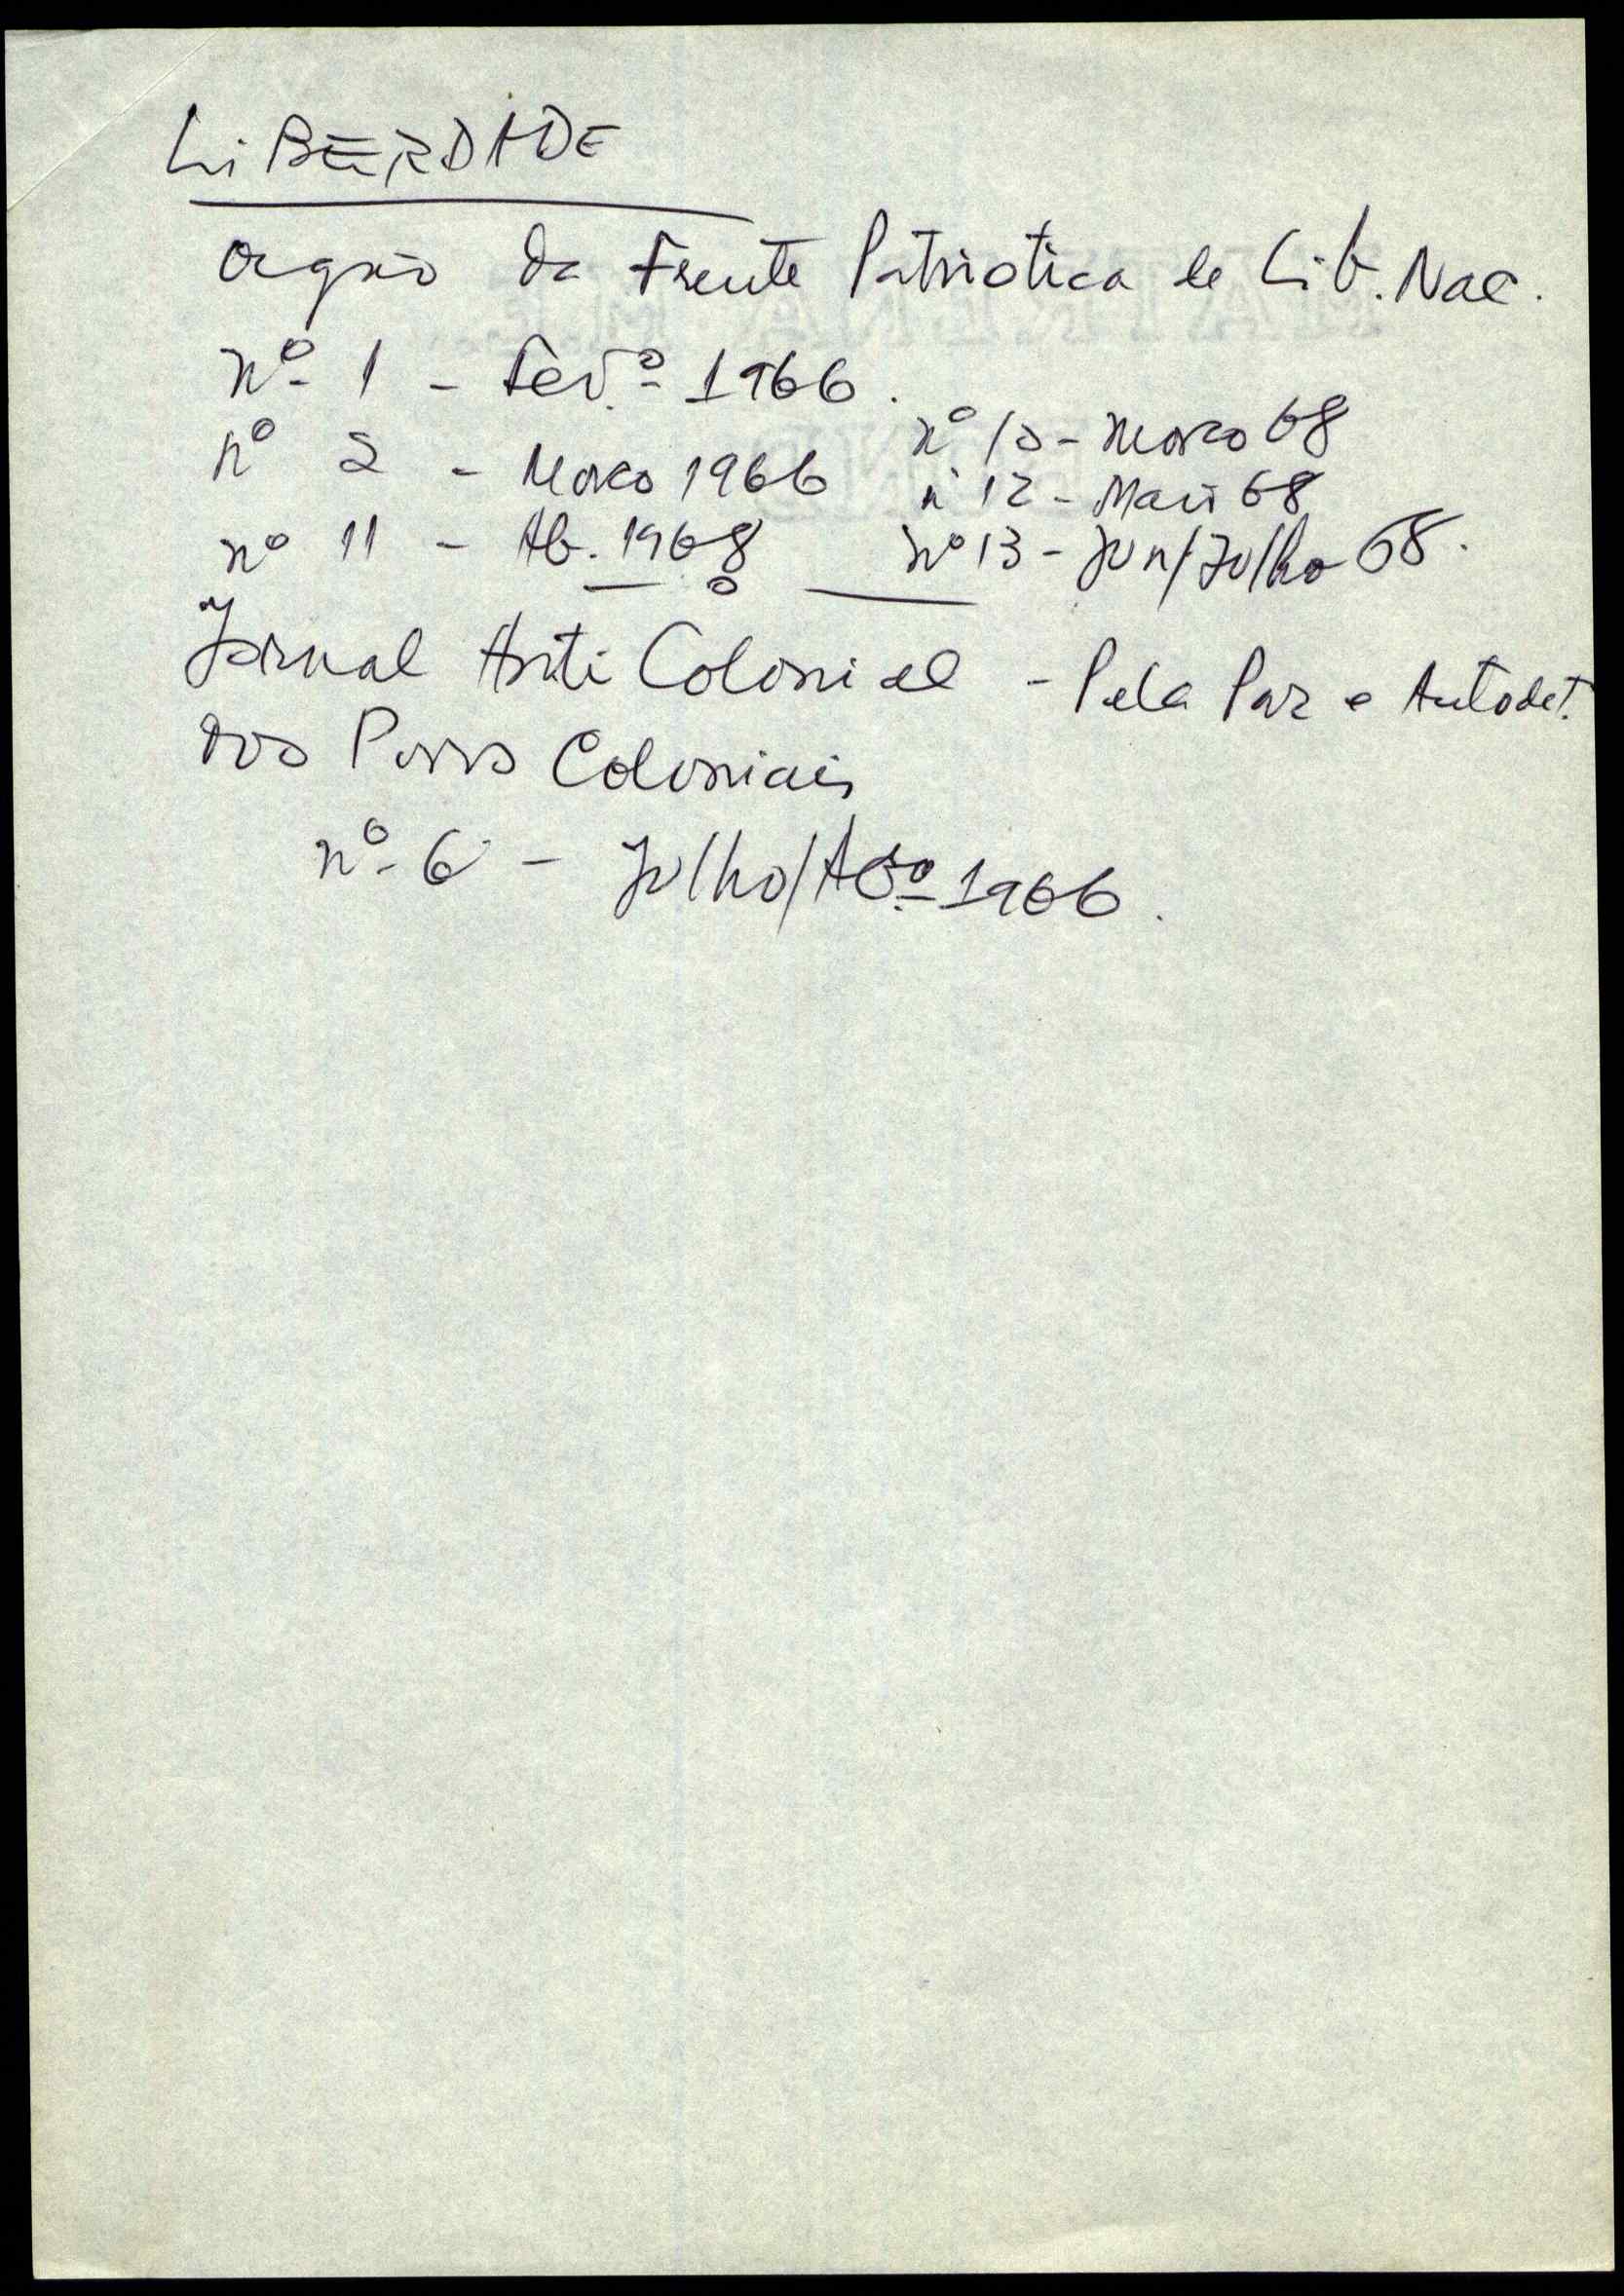 LiBERDADE
Orgão da Frente Patriotica de Lib. Nac.
nº 1 - Fev.º 1966.
nº 2 - Março 1966
nº 11 - Ab. 1968
nº 10 - Março 68
nº 12 - Maio 68
nº 13 - Jun/Julho 68.
Jornal Anti Colonial - Pela Paz e Autodet.
dos Povos Coloniais
nº 6 - Julho/Agº 1966.